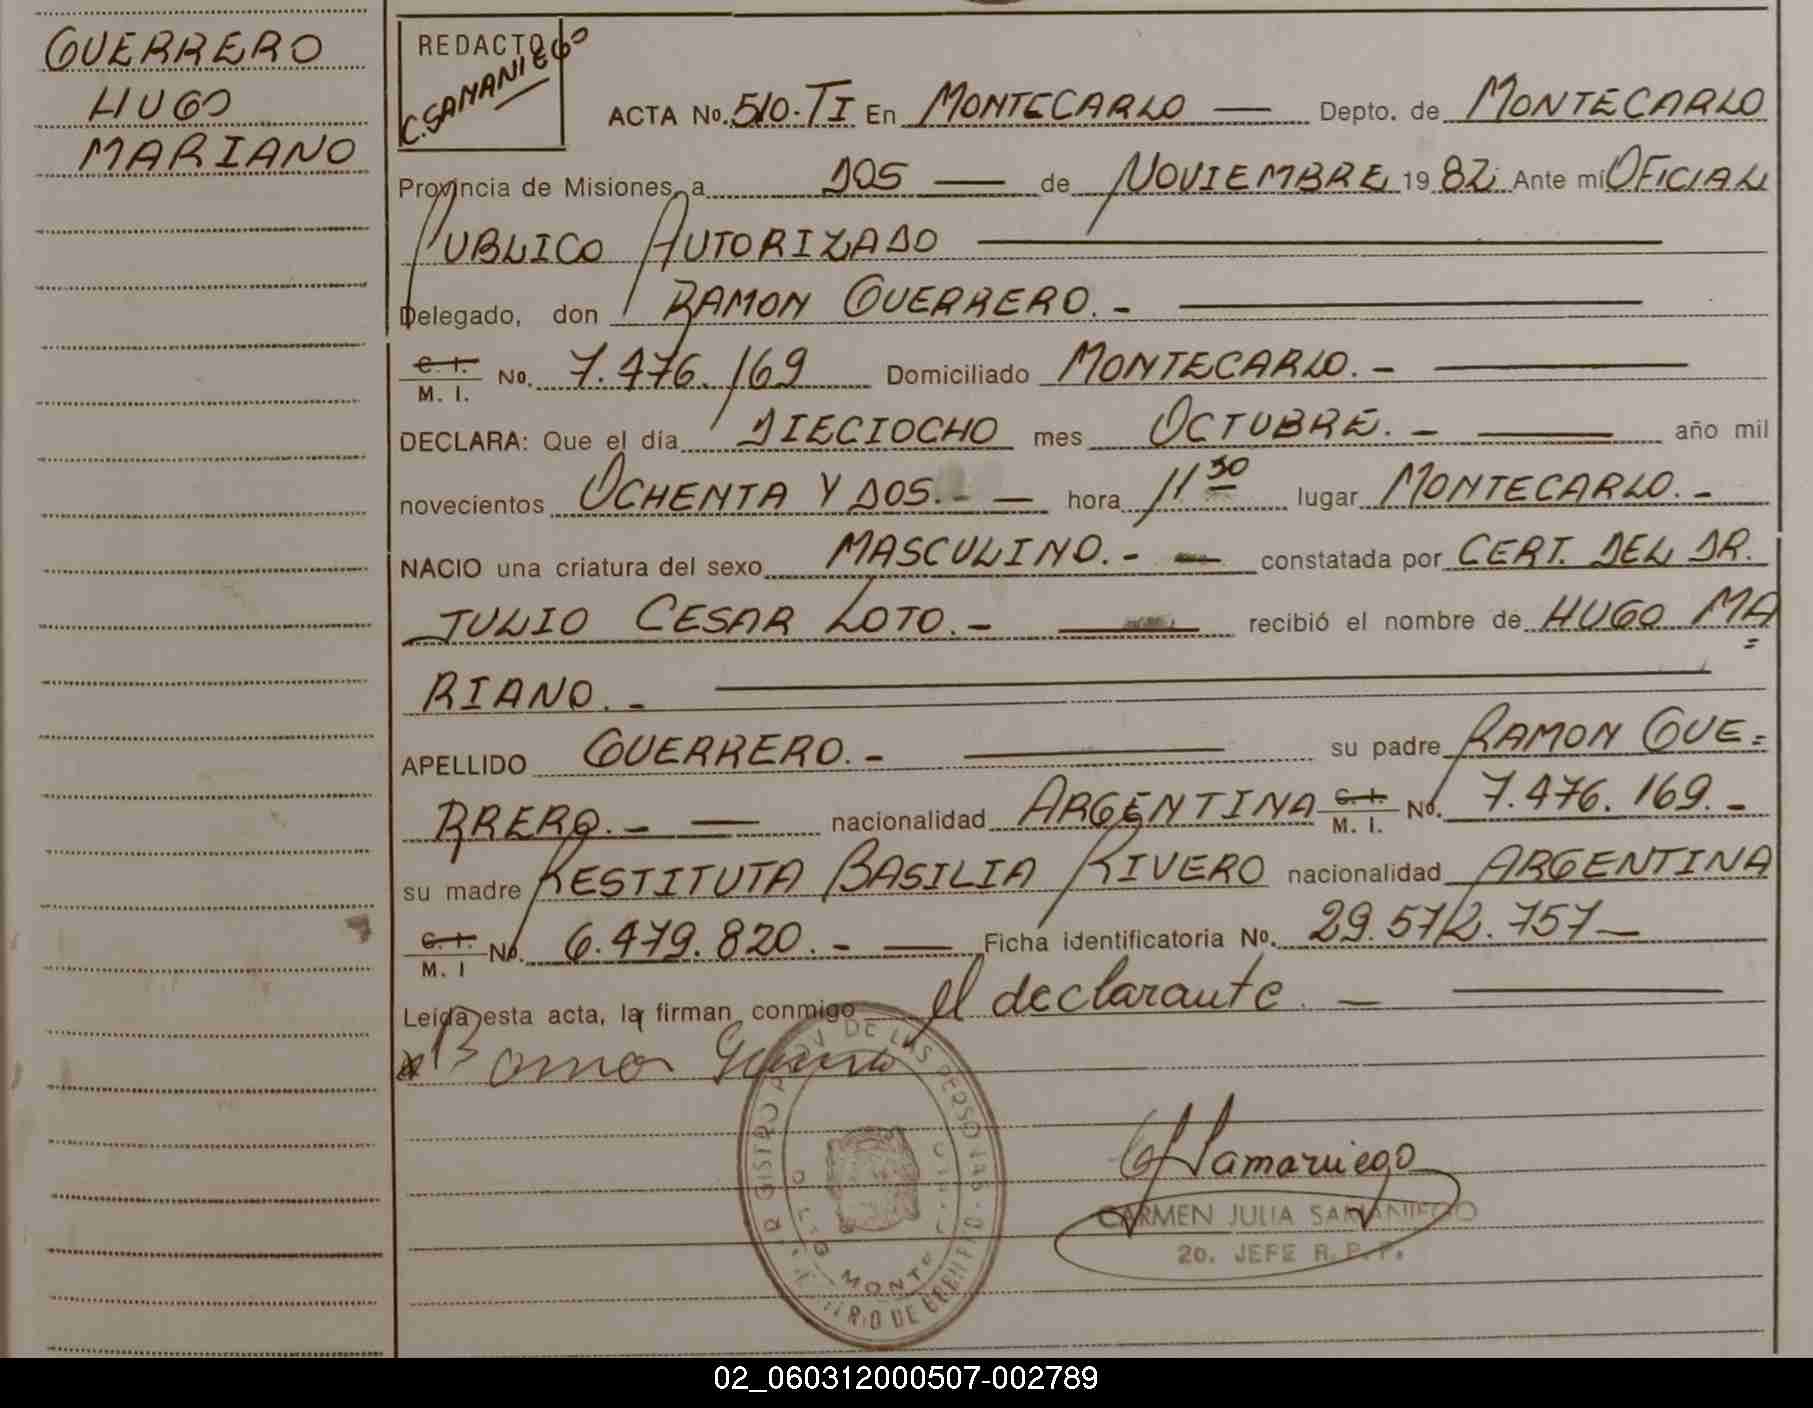 GUERRERO
HUGO
MARIANO
REDACTO
C. SAMANIEGO
ACTA No. 510. TI En MONTECARLO — Depto. de MONTECARLO
Provincia de Misiones, a DOS — de NOVIEMBRE 1982 Ante mí OFICIAL
PUBLICO AUTORIZADO —
Delegado, don RAMON GUERRERO. - —
C. I. / M. I. No. 7.476.169 Domiciliado MONTECARLO. - —
DECLARA: Que el día DIECIOCHO mes OCTUBRE. - — año mil
novecientos OCHENTA Y DOS. - — hora 11 30 lugar MONTECARLO. -
NACIO una criatura del sexo MASCULINO. - — constatada por CERT. DEL DR.
JULIO CESAR LOTO. - — recibió el nombre de HUGO MA=
RIANO. - —
APELLIDO GUERRERO. - — su padre RAMON GUE=
RRERO. - — nacionalidad ARGENTINA C. I. / M. I. No. 7.476.169. -
su madre RESTITUTA BASILIA RIVERO nacionalidad ARGENTINA
C. I. / M. I No. 6.479.820. - — Ficha identificatoria No. 29.572.757 —
Leída esta acta, la firman conmigo el declarante. — —
Ramon Guerrero
REGISTRO PROV DE LAS PERSONAS
MONTE
MINISTERIO DE GOBIERNO
C Samaniego
CARMEN JULIA SAMANIEGO
2o. JEFE R. P. P.
02_060312000507-002789